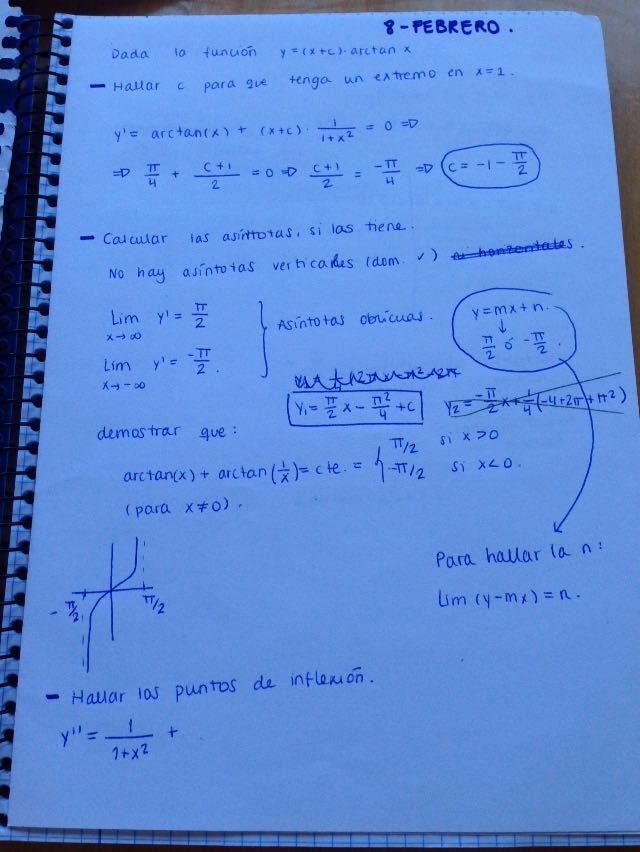 8-FEBRERO.
Dada la función y=(x+c)·arctan x
- Hallar c para que tenga un extremo en x=1.
y' = arctan(x) + (x+c) · 1/(1+x²) = 0 ⇒
⇒ π/4 + (c+1)/2 = 0 ⇒ (c+1)/2 = -π/4 ⇒ c = -1 - π/2
- Calcular las asíntotas, si las tiene.
No hay asíntotas verticales (dom. ✓) ni horizontales.
Lim x→∞ y' = π/2
Lim x→-∞ y' = -π/2.
Asíntotas oblicuas.
y=mx+n.
↓
π/2 ó -π/2.
y₁ = π/2 x - π²/4 + c
y₂ = -π/2 x + 1/4(-4+2π+π²)
demostrar que:
arctan(x) + arctan(1/x) = cte. = { π/2 si x>0
-π/2 si x<0.
(para x≠0).
Para hallar la n:
Lim (y-mx) = n.
-π/2 π/2
- Hallar los puntos de inflexión.
y'' = 1/(1+x²) +